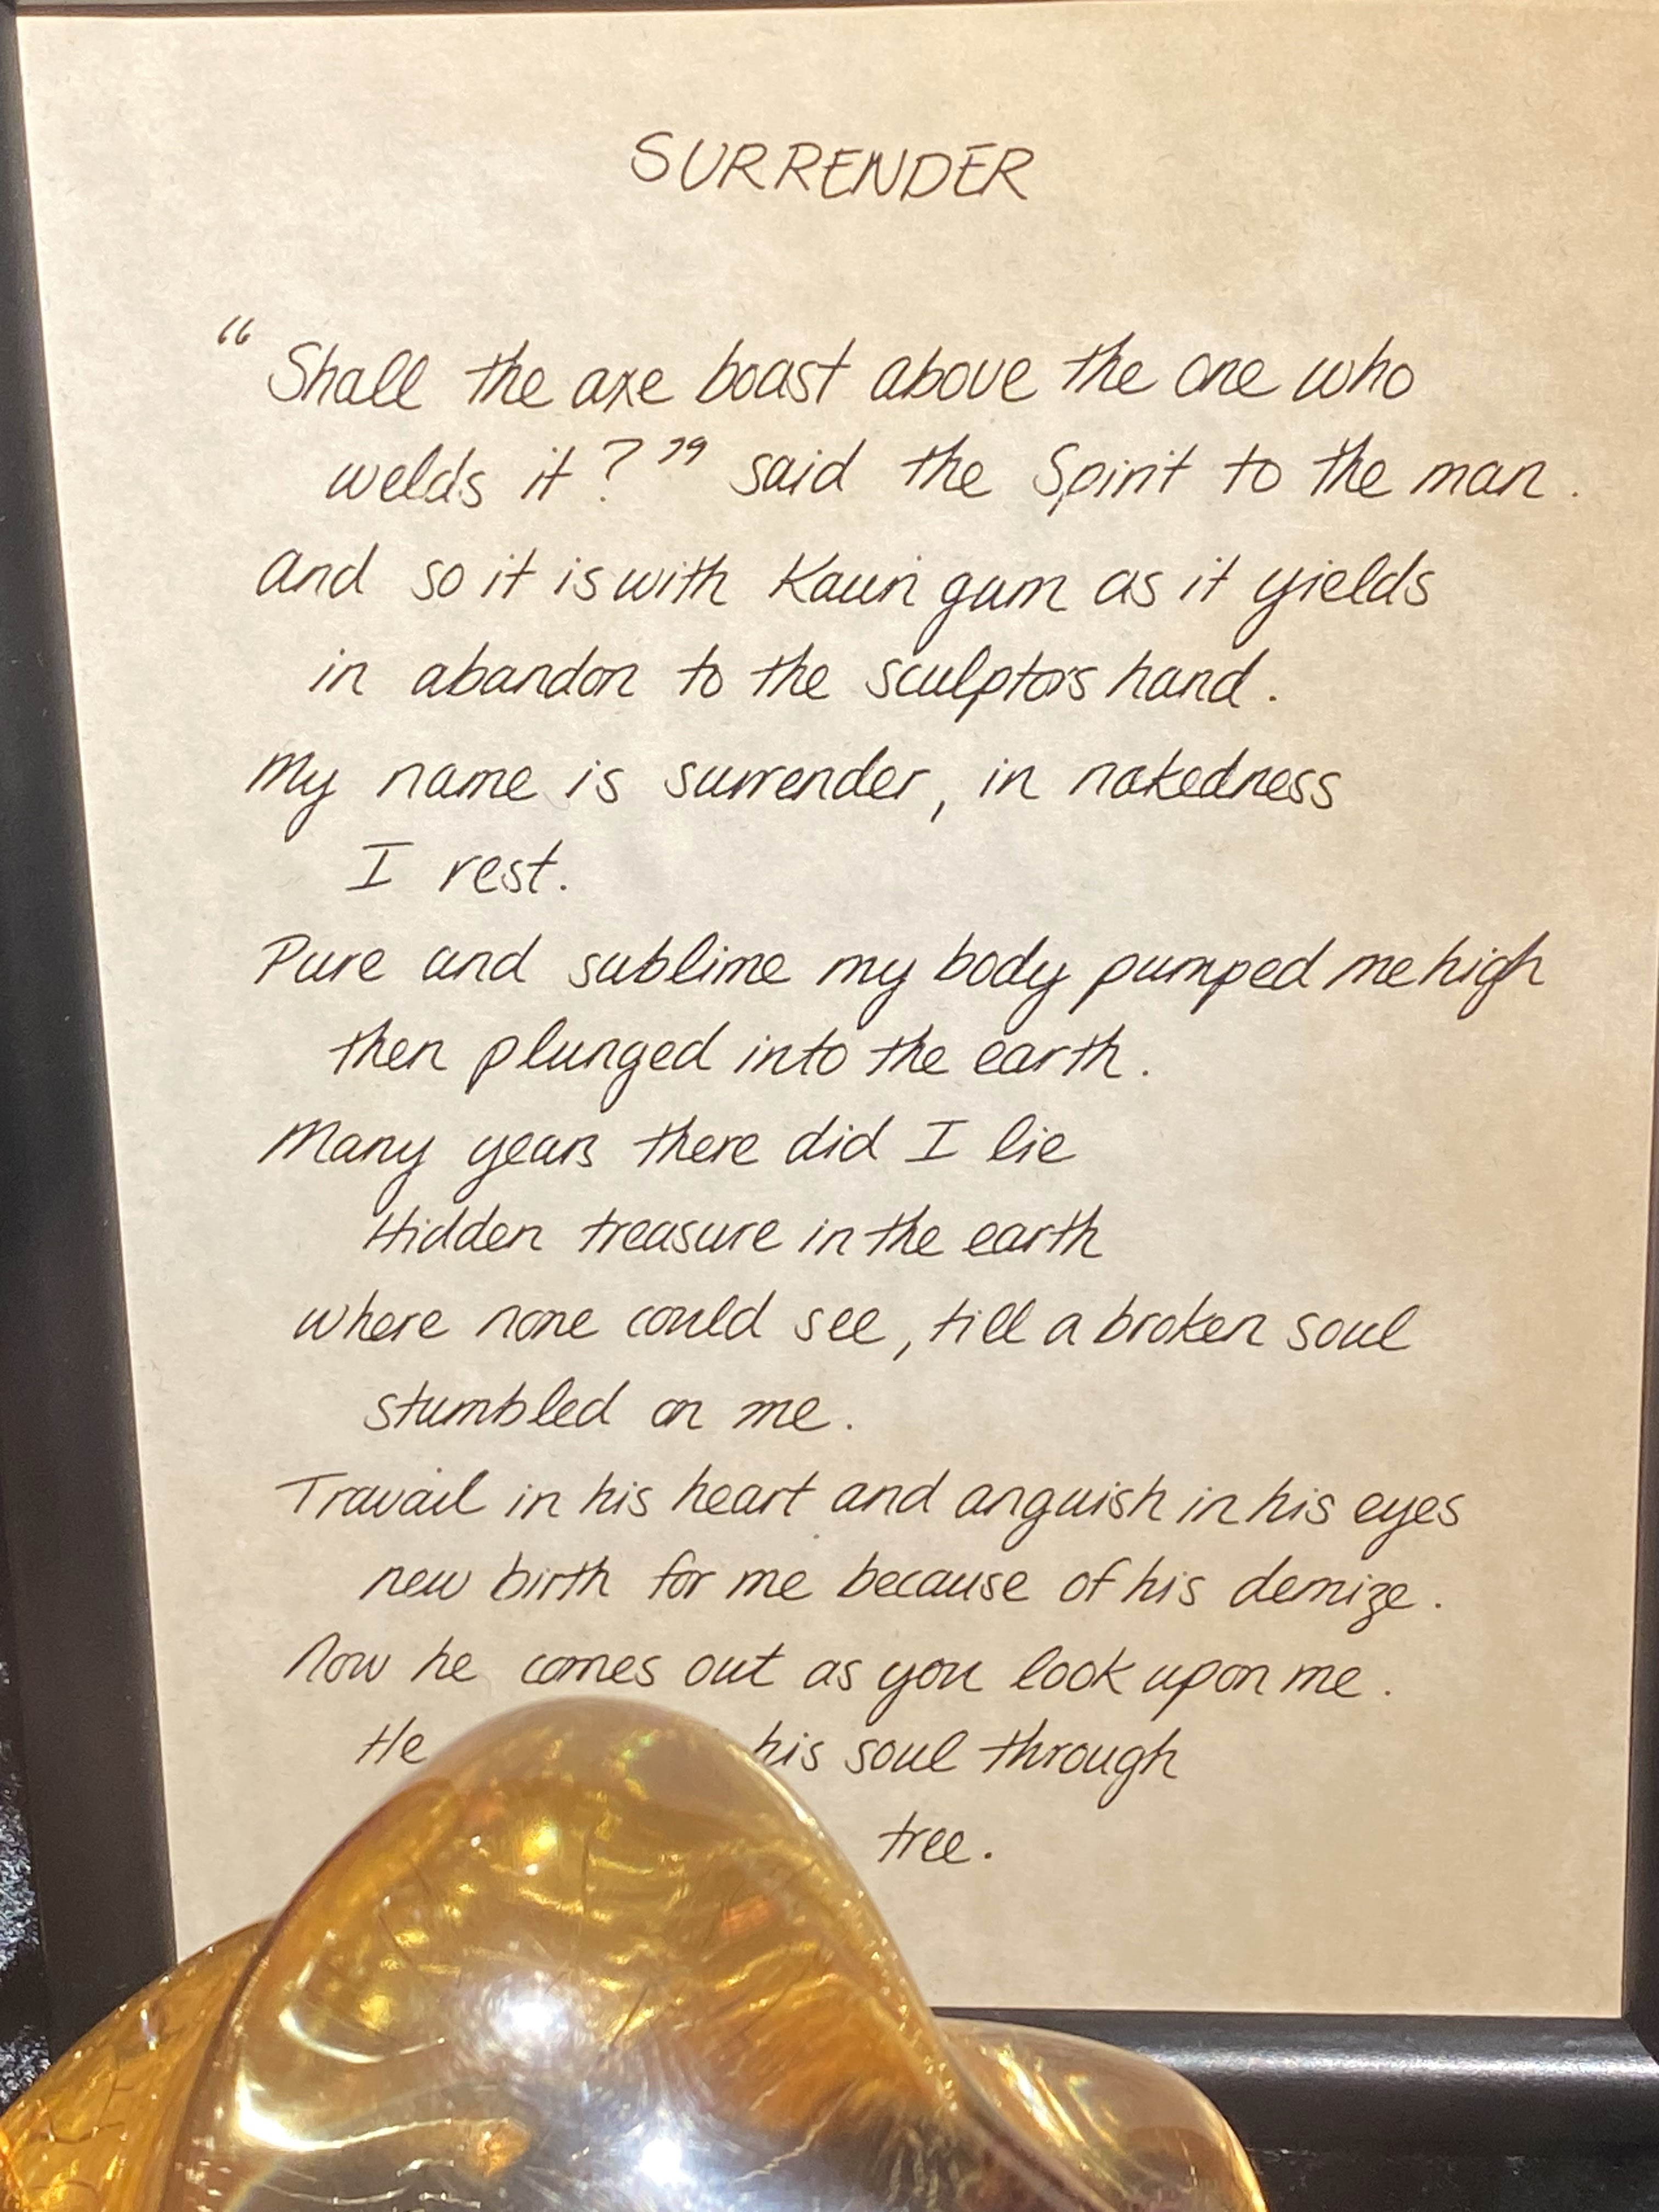 SURRENDER
“Shall the axe boast above the one who
welds it?” said the Spirit to the man.
And so it is with Kauri gum as it yields
in abandon to the sculptors hand.
My name is surrender, in nakedness
I rest.
Pure and sublime my body pumped me high
then plunged into the earth.
Many years there did I lie
Hidden treasure in the earth
where none could see, till a broken soul
stumbled on me.
Travail in his heart and anguish in his eyes
new birth for me because of his demize.
Now he comes out as you look upon me.
He his soul through
tree.